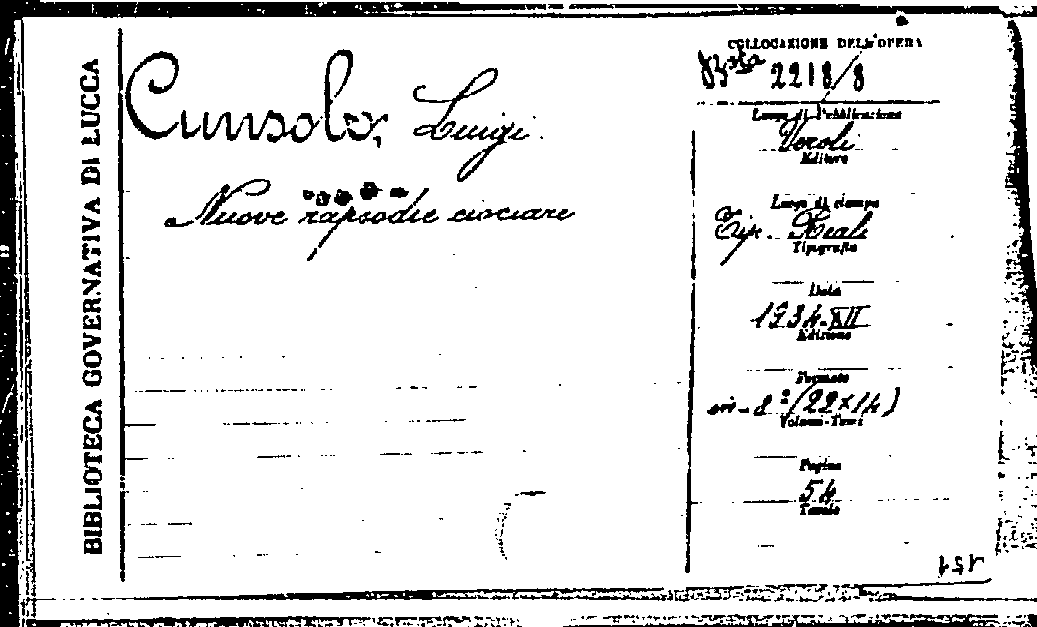 BIBLIOTECA GOVERNATIVA DI LUCCA
Cunsolo, Luigi.
Nuove rapsodie ciociare
COLLOCAZIONE DELL'OPERA
2218/8
Luogo di Pubblicazione
Veroli
Editore
Luogo di stampa
Tip. Reali
Tipografia
Data
1934-XII
Edizione
Formato
in-8º (22x14)
Volumi-Tomi
Pagine
54
Tavole